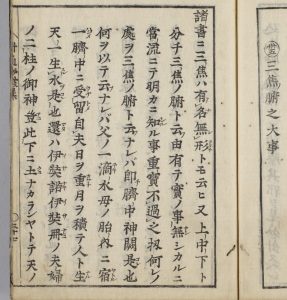 三焦腑之大事
諸書ニ三焦ハ有名無形トモ云ヒ又上中下ト
分チ三焦ノ腑ト云由有テ實ノ事無シカルニ
當流ニテ明カニ知ル事重寶不過之扨何レノ
處ヲ三焦ノ腑ト云ナレバ即臍中神闕是也
何ヲ以テ云ナレバ父ノ一滴水母ノ胎內ニ宿
一臍中ニ受留自夫日ヲ重月ヲ積テ人ト生
天一生水是也還ハ伊弉諾伊弉冊ノ夫婦
ノ二柱ノ御神豈此下ニ土ナカランヤトテ天ノ